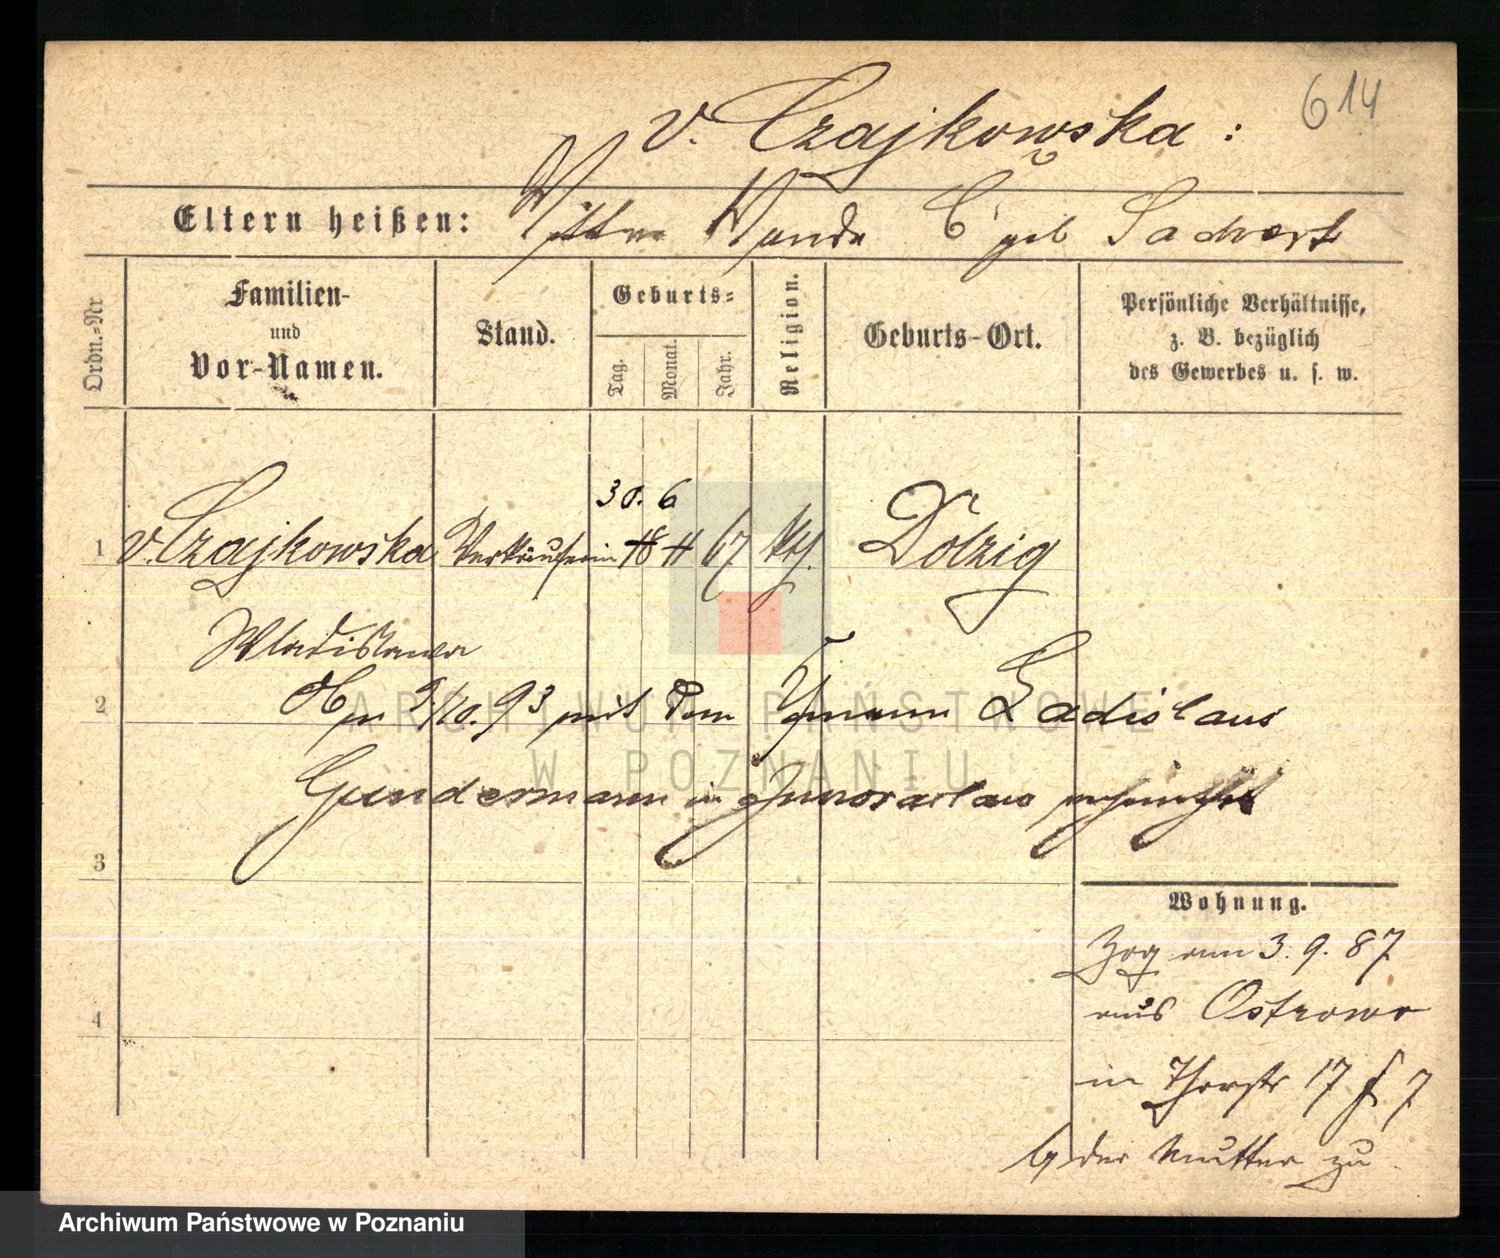 614
v. Czajkowska:
Eltern heißen: Wittwe Wanda C geb
Familien-
und
Vor-Namen.
Ordn.-Nr
Stand.
Geburts-
Tag. Monat. Jahr.
Religion.
Geburts-Ort.
Persönliche Verhältnisse,
z. B. bezüglich
des Gewerbes u. s. w.
30. 6
1 v. Czajkowska Verkäuferin 18 11 67 kth. Dolzig
Wladislawa
2 Am 9/10. 93 mit dem Ladislaus
Gundermann in Inowrazlaw
3
Wohnung.
Zog am 3. 9. 87
aus Ostrowo
4
in Thorstr 17 f. 7
b/ der Mutter zu
ARCHIWUM PAŃSTWOWE
W POZNANIU
Archiwum Państwowe w Poznaniu